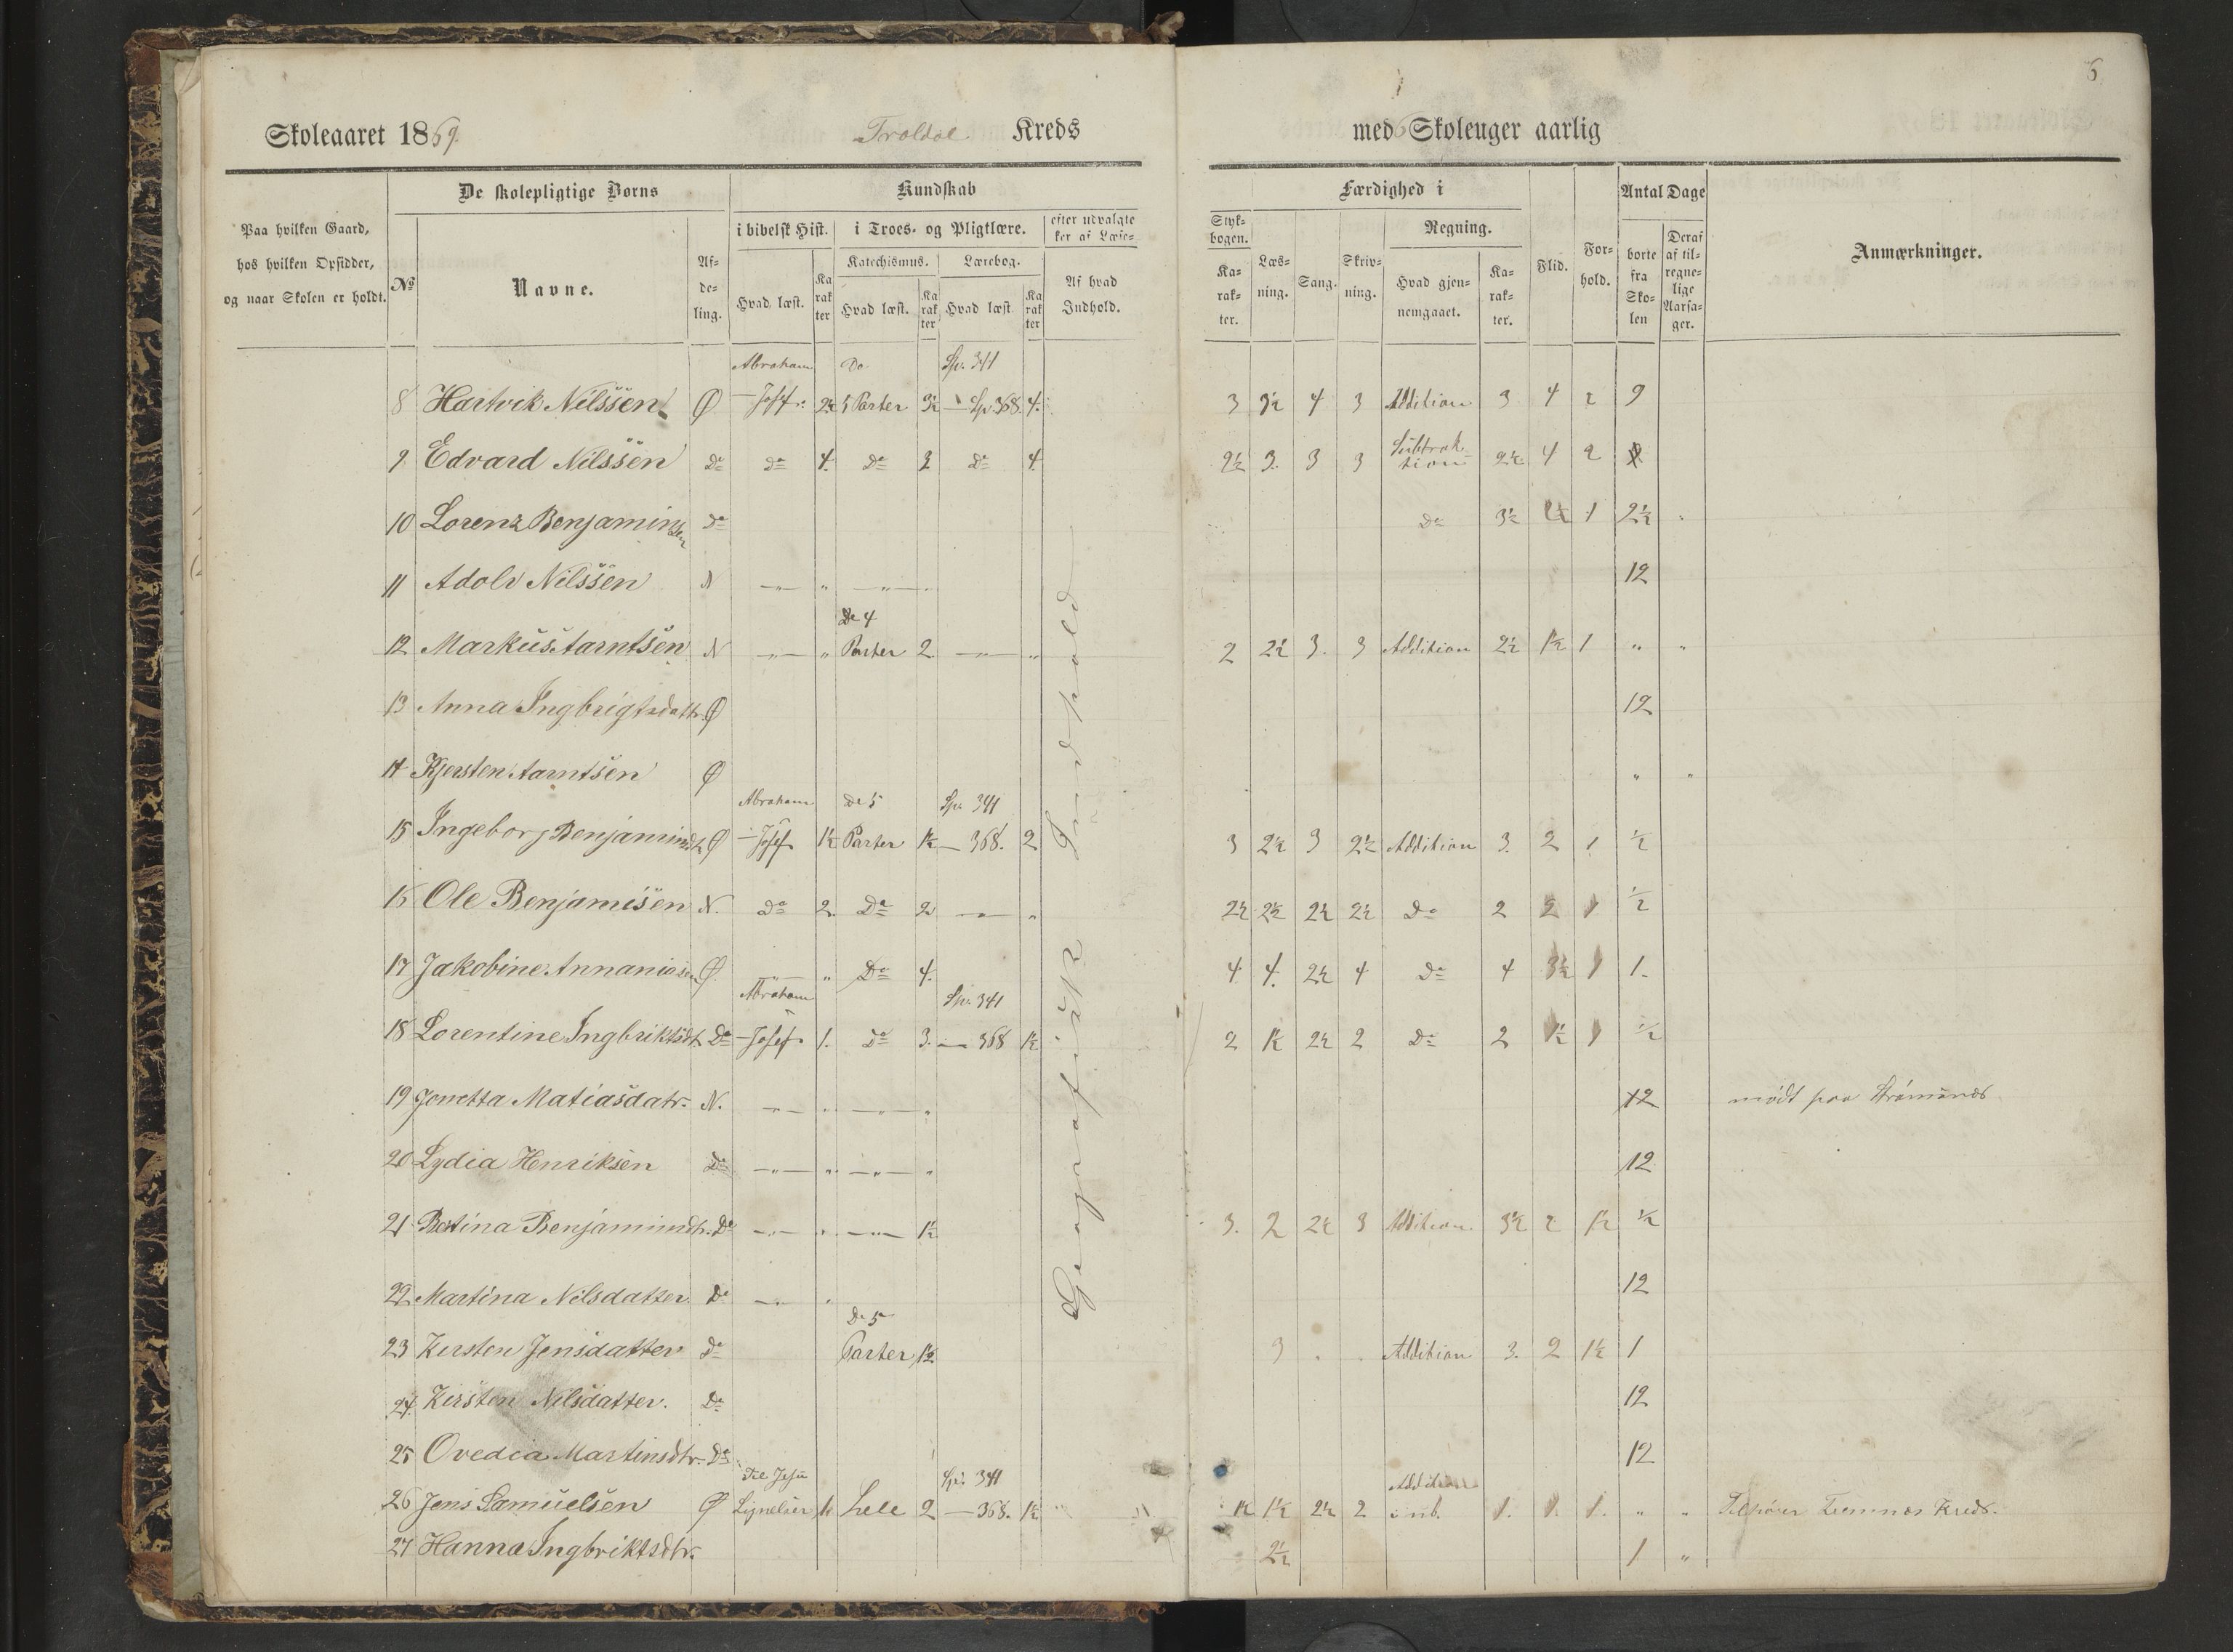 6
Skoleaaret 1869.
Troldal Kreds
med Skoleuger aarlig
Paa hvilken Gaard, hos hvilken Opsidder, og naar Skolen er holdt.
De skolepligtige Børns
No
Navne.
Af-de-ling.
Kundskab
i bibelsk Hist.
Hvad læst.
Ka rak ter
i Troes- og Pligtlære.
Katechismus.
Hvad læst.
Ka rak ter
Lærebog.
Hvad læst
Ka rak ter
efter udvalgte
ker af Læse-
Af hvad Indhold.
Færdighed i
Styk-bogen.
Ka-rak-ter.
Læs-ning.
Sang.
Skriv-ning.
Regning.
Hvad gjen-nemgaaet.
Ka-rak-ter.
Flid.
For-hold.
Antal Dage
borte fra Sko-len
Deraf af til-regne-lige Aarsa-ger.
Anmærkninger.
Abraham Do Sp. 341
8 Hartvik Nilssen Ø - Josef. 2½ 5 Parter 3½ - Sp. 368. 4. 3 3½ 4 3 Addition 3 4 2 9
9 Edvard Nilssen Do Do 4. Do 3 Do 4. 2½ 3. 3 3 Subtraktion 2½ 4 2
10 Lorenz Benjaminsen Do Do 3½ 1 2½
11 Adolv Nilssen N — " — " 12
De 4
12 Markus Aarntsen N — " Parter 2 — " 2 2½ 3. 3 Addition 2½ 1½ 1 " "
13 Anna Ingbrigtsdattr. Ø 12
14 Kjersten Aarntsen Ø " "
Abraham De 5 Sp. 341
15 Ingeborg Benjamindtr Ø - Josef 1½ Parter 1½ — 368. 2 3 2½ 3 2½ Addition 3. 2 1 ½
16 Ole Benjamisen N. Do 2. Do 2. — " 2½ 2½ 2½ 2½ Do 2 2 1 ½
17 Jakobine Annaniasen Ø — " Do 4. 4 4. 2½ 4 Do 4 3½ 1 1.
Abraham Sp. 341
18 Lorentine Ingbriktsdt. Do - Josef 1. Do 3. — 368 1½ 2 1½ 2½ 2 Do 2 1½ 1 ½
19 Jonetta Matiasdatr. N. — " — " 12 mødt paa
20 Lydia Henriksen Do — " — " 12
21 Bertina Benjamindtr. Do — " — 1½ 3. 2 2½ 3 Addition 3½ 2 1½ ½
22 Martina Nilsdatter Do — " 12
De 5
23 Kersten Jensdatter Do Parter 1½ 3 . . Addition 3. 2 1½ 1
24. Kirsten Nilsdatter. Do 12
25 Ovedia Martinsdtr. Do 12
Til Jesu Sp. 341 Addition
26 Jens Samuelsen Ø Lignelser 1½ Hele 2 — 368. 1½ 1½ 1½ 2½ 2 i ub. 1. 1. 1. " " Tilhører Kreds.
27 Hanna Ingbriktsdtr. 2½ 1 "
Geografisk Indhold